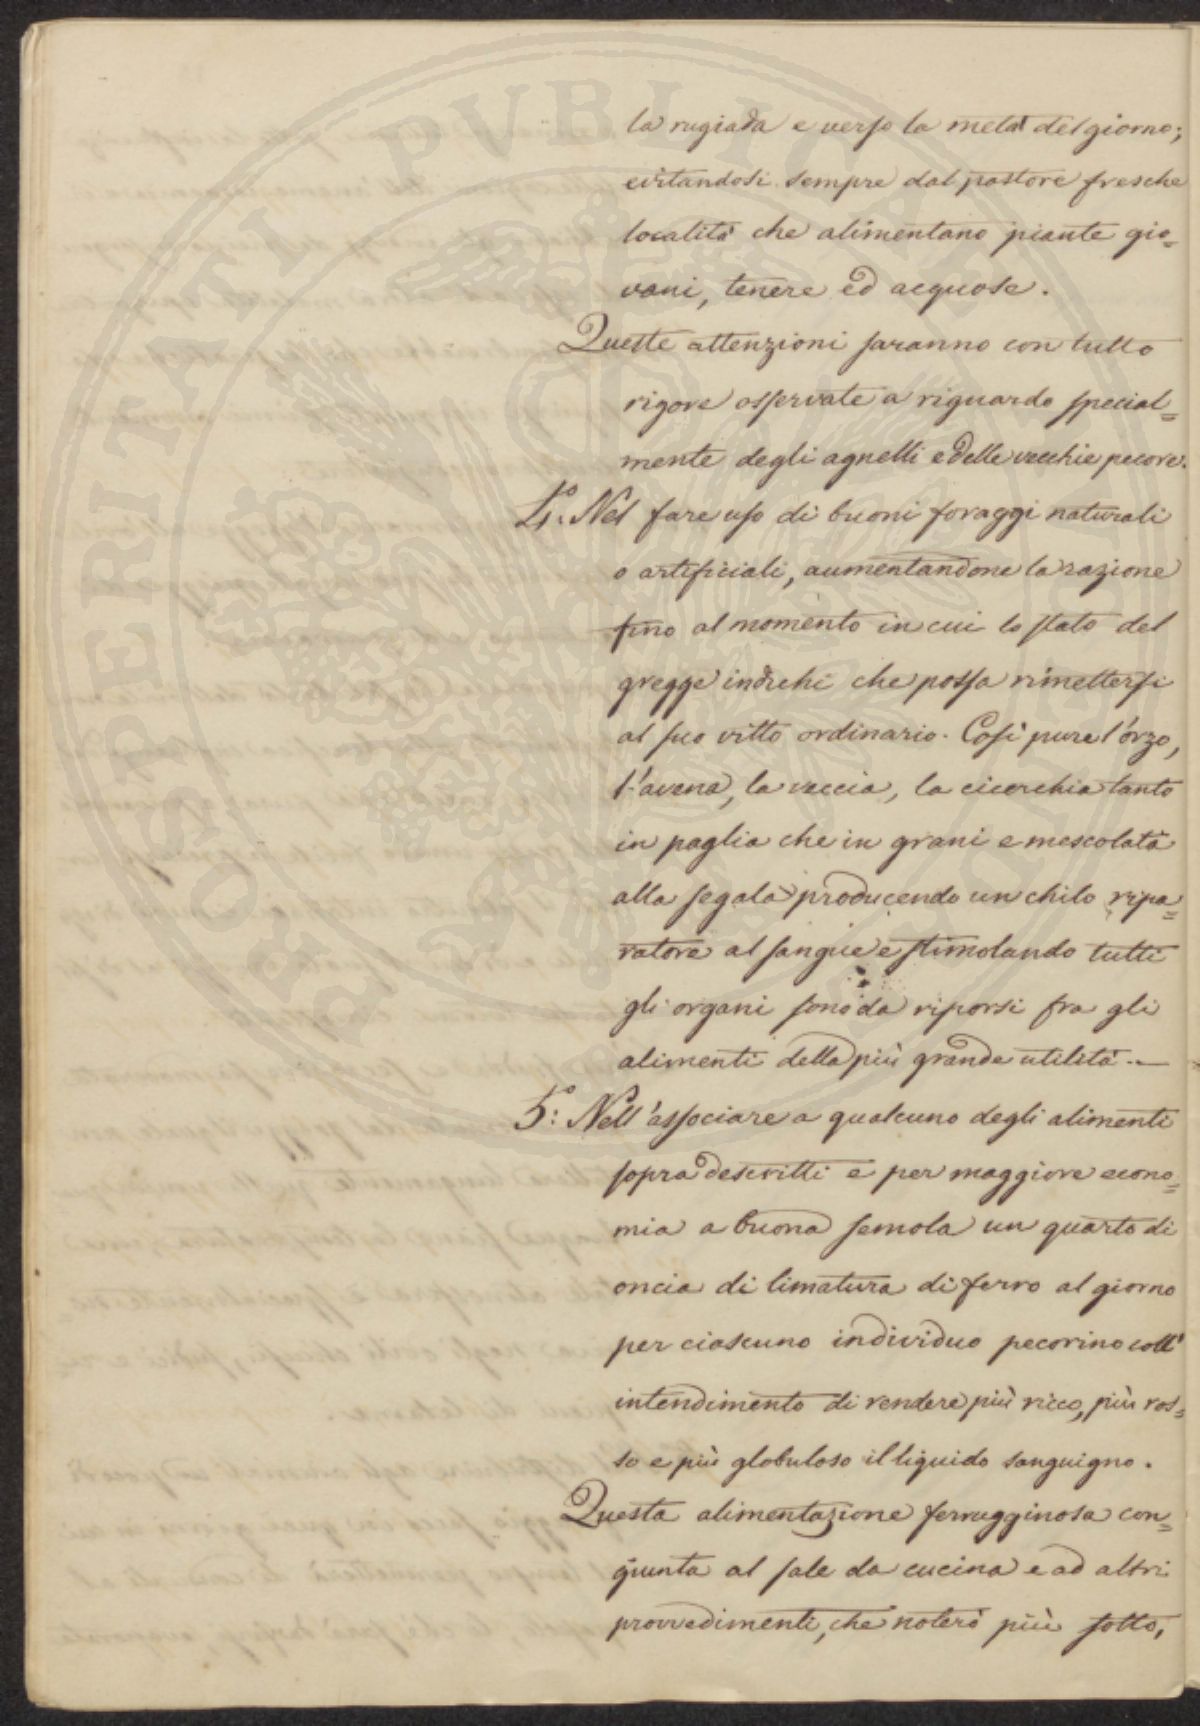 la rugiada e verso la metà del giorno;
evitandosi sempre dal pastore fresche
località che alimentano piante gio=
vani, tenere ed acquose.
Queste attenzioni saranno con tutto
rigore osservate a riguardo special=
mente degli agnelli e delle vecchie pecore.
4.° Nel fare uso di buoni foraggi naturali
o artificiali, aumentandone la razione
fino al momento in cui lo stato del
gregge indichi che possa rimettersi
al suo vitto ordinario. Così pure l'orzo,
l'avena, la veccia, la cicerchia tanto
in paglia che in grani e mescolata
alla segala producendo un chilo ripa=
ratore al sangue e stimolando tutti
gli organi sono da riporsi fra gli
alimenti della più grande utilità.—
5.° Nell'associare a qualcuno degli alimenti
sopra descritti e per maggiore econo=
mia a buona semola un quarto di
oncia di limatura di ferro al giorno
per ciascuno individuo pecorino coll'
intendimento di rendere più ricco, più ros=
so e più globuloso il liquido sanguigno.
Questa alimentazione ferrugginosa con=
giunta al sale da cucina e ad altri
provvedimenti, che noterò più sotto,
PVBLICAE
PROSPERITATI